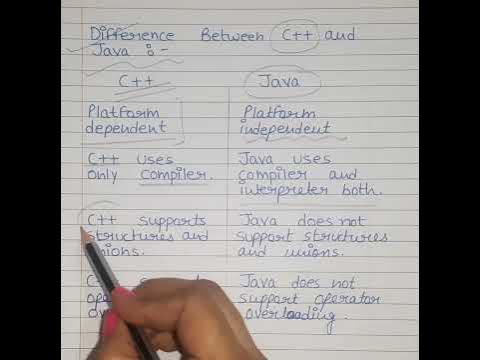 Difference Between C++ and
Java :-
C++ Java
Platform dependent
Platform independent
C++ uses only compiler.
Java uses compiler and interpreter both.
C++ supports structures and unions.
Java does not support structures and unions.
Java does not support operator overloading.